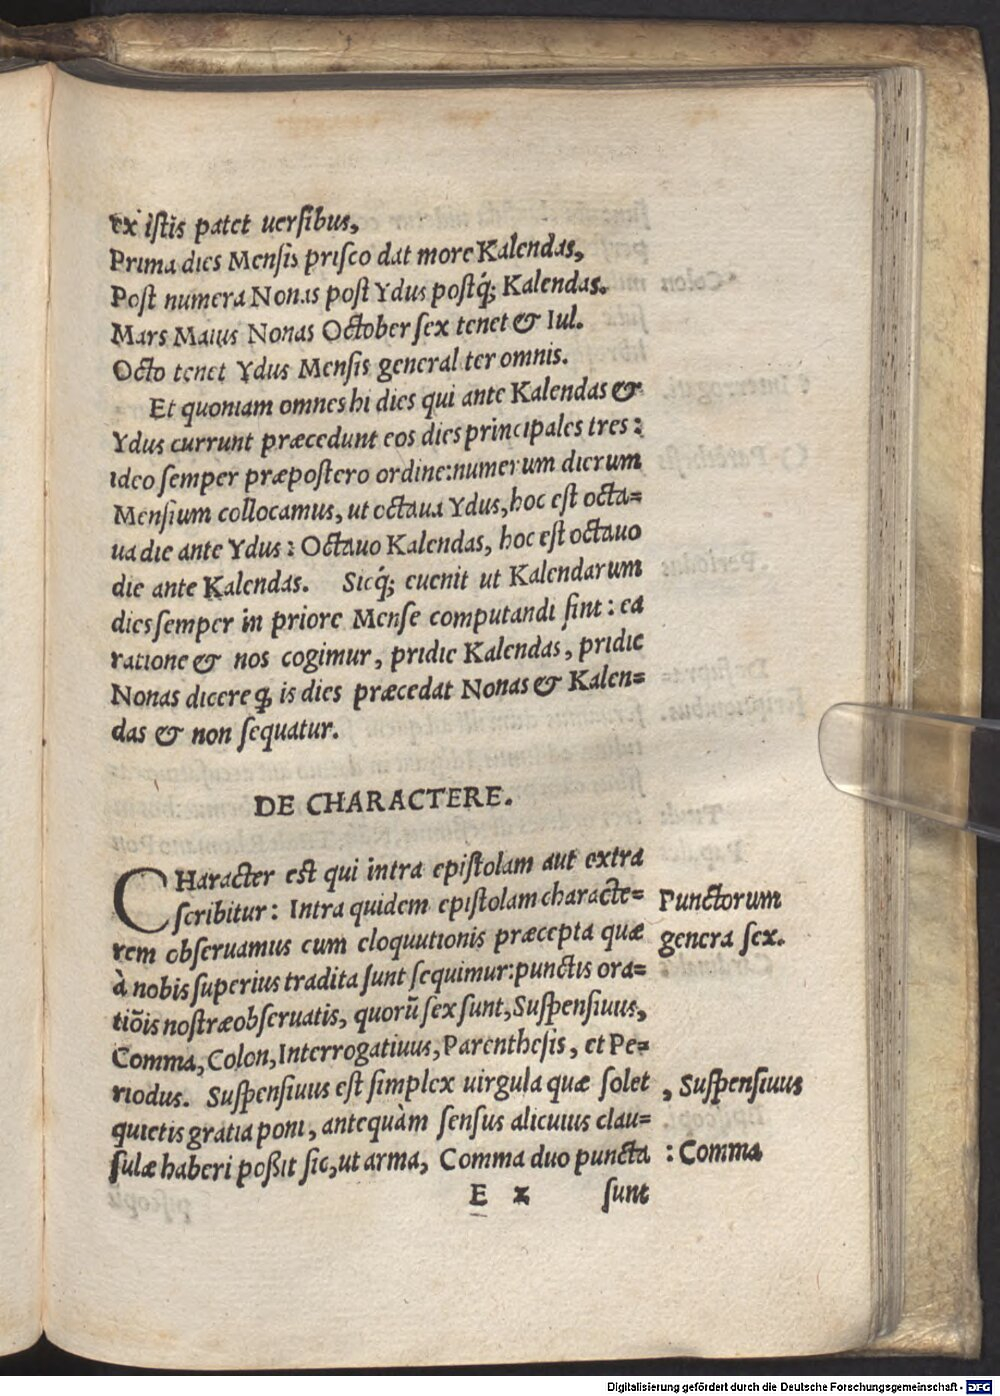 ex istis patet uersibus,
Prima dies Mensis prisco dat more Kalendas,
Post numera Nonas post Ydus postq́; Kalendas.
Mars Maius Nonas October sex tenet & Iul.
Octo tenet Ydus Mensis general ter omnis.
Et quoniam omnes hi dies qui ante Kalendas &
Ydus currunt præcedunt eos dies principales tres:
ideo semper præpostero ordine: numerum dierum
Mensium collocamus, ut octaua Ydus, hoc est octa=
ua die ante Ydus: Octauo Kalendas, hoc est octauo
die ante Kalendas. Sicq́; euenit ut Kalendarum
dies semper in priore Mense computandi sint: ea
ratione & nos cogimur, pridie Kalendas, pridie
Nonas dicere ꝙ is dies præcedat Nonas & Kalen=
das & non sequatur.
DE CHARACTERE.
CHaracter est qui intra epistolam aut extra
scribitur: Intra quidem epistolam characte=
rem obseruamus cum eloquutionis præcepta quæ
à nobis superius tradita sunt sequimur: punctis ora=
tiõis nostræ obseruatis, quorũ sex sunt, Suspensiuus,
Comma, Colon, Interrogatiuus, Parenthesis, et Pe=
riodus. Suspensiuus est simplex uirgula quæ solet
quietis gratia poni, antequàm sensus alicuius clau=
sulæ haberi poßit sic, ut arma, Comma duo puncta
E 2 sunt
Punctorum
genera sex.
, Suspensiuus
: Comma
Digitalisierung gefördert durch die Deutsche Forschungsgemeinschaft - DFG